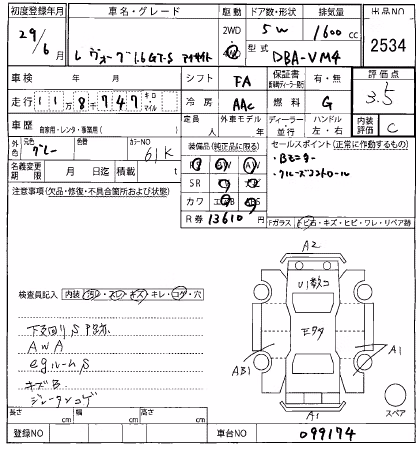 初度登録年月 車名・グレード 駆動 ドア数・形状 排気量 出品NO
29/6 レヴォーグ1.6GT-S アイサイト 2WD 4W 5W 1600cc 2534
月 型式 DBA-VM4
車検 年 月 シフト FA 保証書 有・無 評価点
走行 118747 キロ・マイル 冷房 AAC 燃料 G 3.5
車歴 自家用・レンタ・事業用( ) 定員 人 外車モデル 年 ディーラー 並行 ハンドル 左・右 内装評価 C
外色 元色 グレー 色番 カラーNO 61K 装備品(純正品に限る) セールスポイント(正常に作動するもの)
名義変更期限 月 日迄 積載 t ・Bモニター
注意事項(欠品・修復・不具合箇所および状態) SR ・クルーズコントロール
カワ
R券 13610円 Fガラス トビ石・キズ・ヒビ・ワレ・リペア跡
A2
検査員記入 内装 ヨゴレ・スレ・キズ・キレ・コゲ・穴
U1数コ
下廻りSサビ
AWA
egルームS
キズB
AB1
A1
A1
スペア
長さ cm 幅 cm 高さ cm
登録NO 車台NO 099174